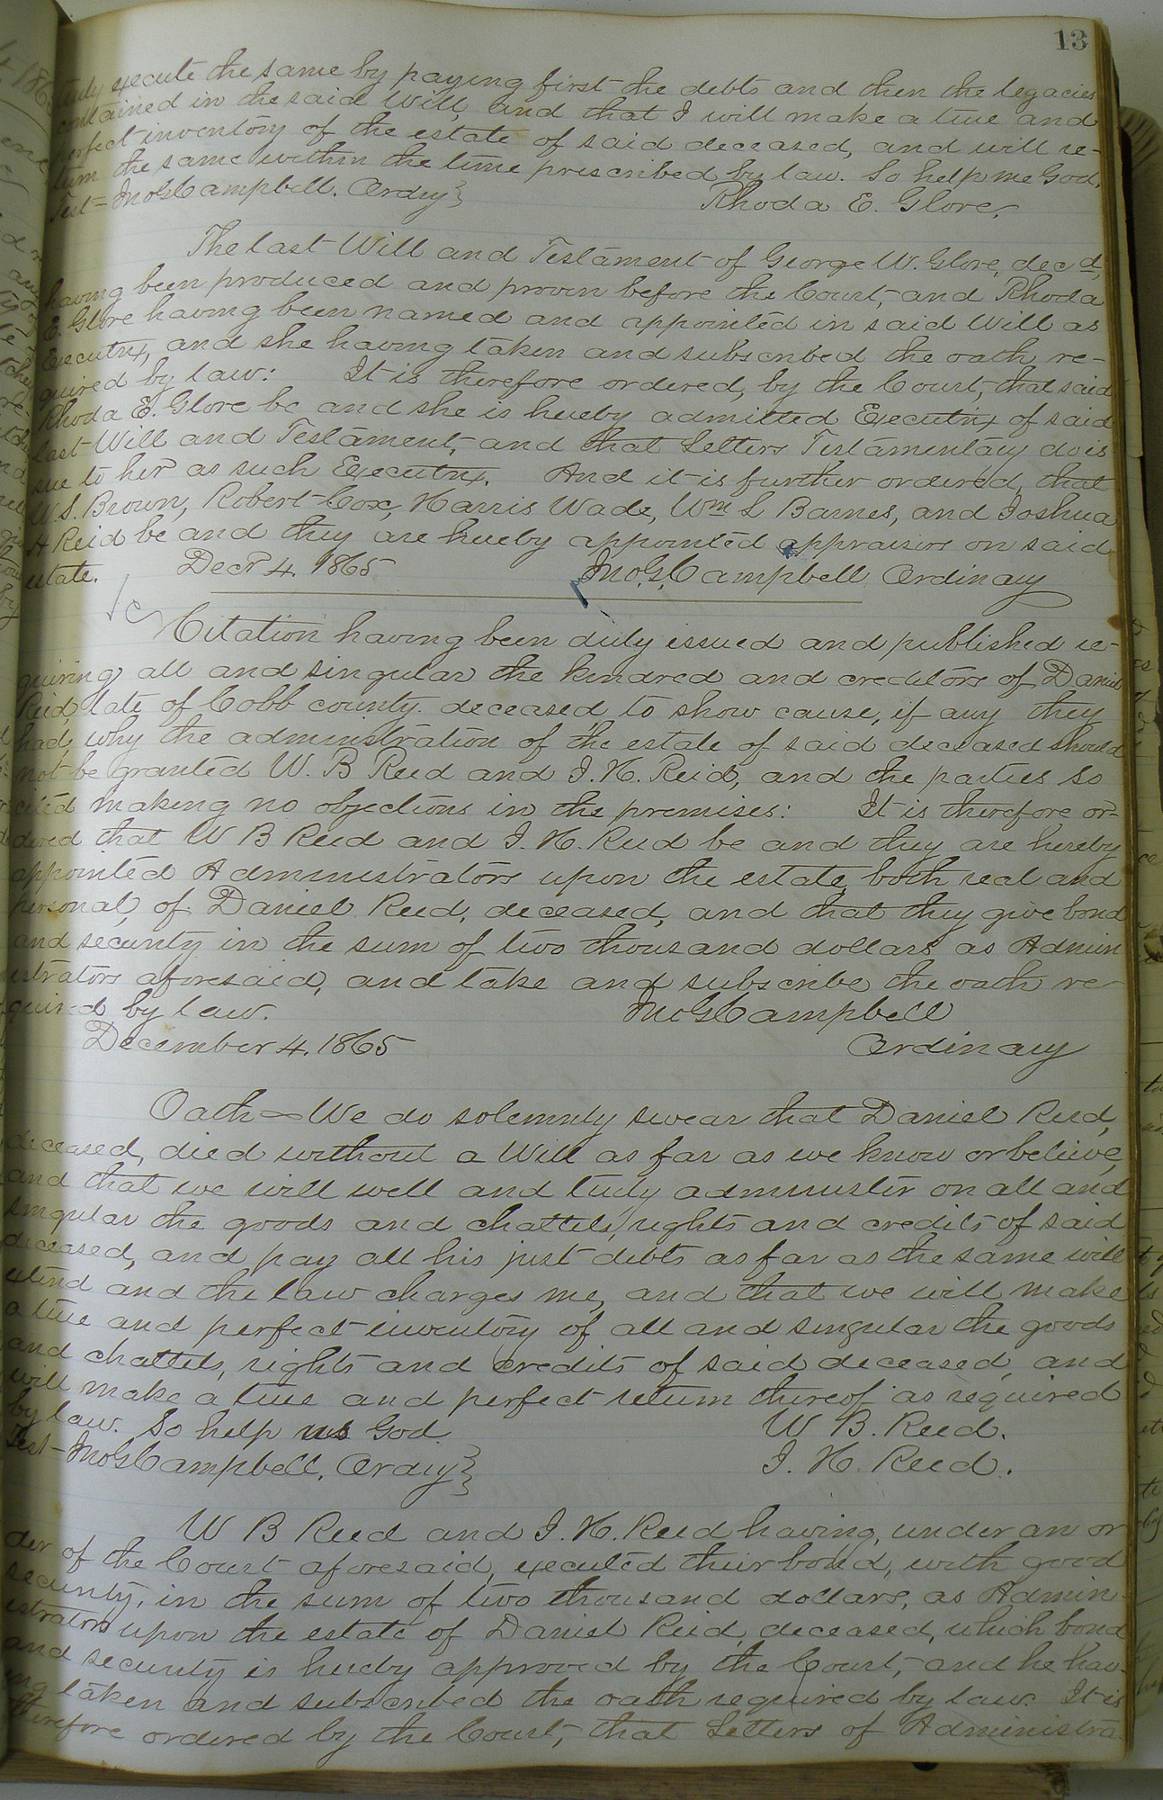 13
truly execute the same by paying first the debts and then the legacies
contained in the said Will, and that I will make a true and
perfect inventory of the estate of said deceased, and will re-
turn the same within the time prescribed by law. So help me God.
Test= Jno G Campbell. Ordry } Rhoda E. Glore.
The last Will and Testament of George W. Glore, dec'd,
having been produced and proven before the Court, and Rhoda
E. Glore having been named and appointed in said Will as
Executrix, and she having taken and subscribed the oath re-
quired by law: It is therefore ordered, by the Court, that said
Rhoda E. Glore be and she is hereby admitted Executrix of said
last Will and Testament, and that Letters Testamentary do is
sue to her as such Executrix. And it is further ordered, that
W. S. Brown, Robert Cox, Harris Wade, Wm L Barnes, and Joshua
A Reid be and they are hereby appointed appraisors on said
estate. Decr 4. 1865 Jno. G. Campbell Ordinary
Citation having been duly issued and published re-
quiring all and singular the kindred and creditors of Daniel
Reid, late of Cobb county deceased to show cause, if any they
had, why the administration of the estate of said deceased should
not be granted W. B Reed and J. H. Reid, and the parties so
cited making no objections in the premises: It is therefore or-
dered that W B Reed and J. H. Reed be and they are hereby
appointed Administrators upon the estate, both real and
personal, of Daniel Reed, deceased, and that they give bond
and security in the sum of two thousand dollars as Admin
istrators aforesaid, and take and subscribe the oath re-
quired by law. Jno G Campbell
December 4. 1865 Ordinary
Oath - We do solemnly swear that Daniel Reed,
deceased, died without a Will as far as we know or believe,
and that we will well and truly administer on all and
singular the goods and chattels, rights and credits of said
deceased, and pay all his just debts as far as the same will
extend and the law charges me, and that we will make
a true and perfect inventory of all and singular the goods
and chattels, rights and credits of said deceased, and
will make a true and perfect return thereof as required
by law. So help us God. W B. Reed.
Test- Jno G Campbell. Ordry } J. H. Reed.
W B Reed and J. H. Reed having, under an or
der of the Court aforesaid, executed their bond, with good
security, in the sum of two thousand dollars, as Admin-
istrators upon the estate of Daniel Reid, deceased, which bond
and security is hereby approved by the Court, and he hav-
ing taken and subscribed the oath required by law. It is
therefore ordered by the Court, that Letters of Administra-